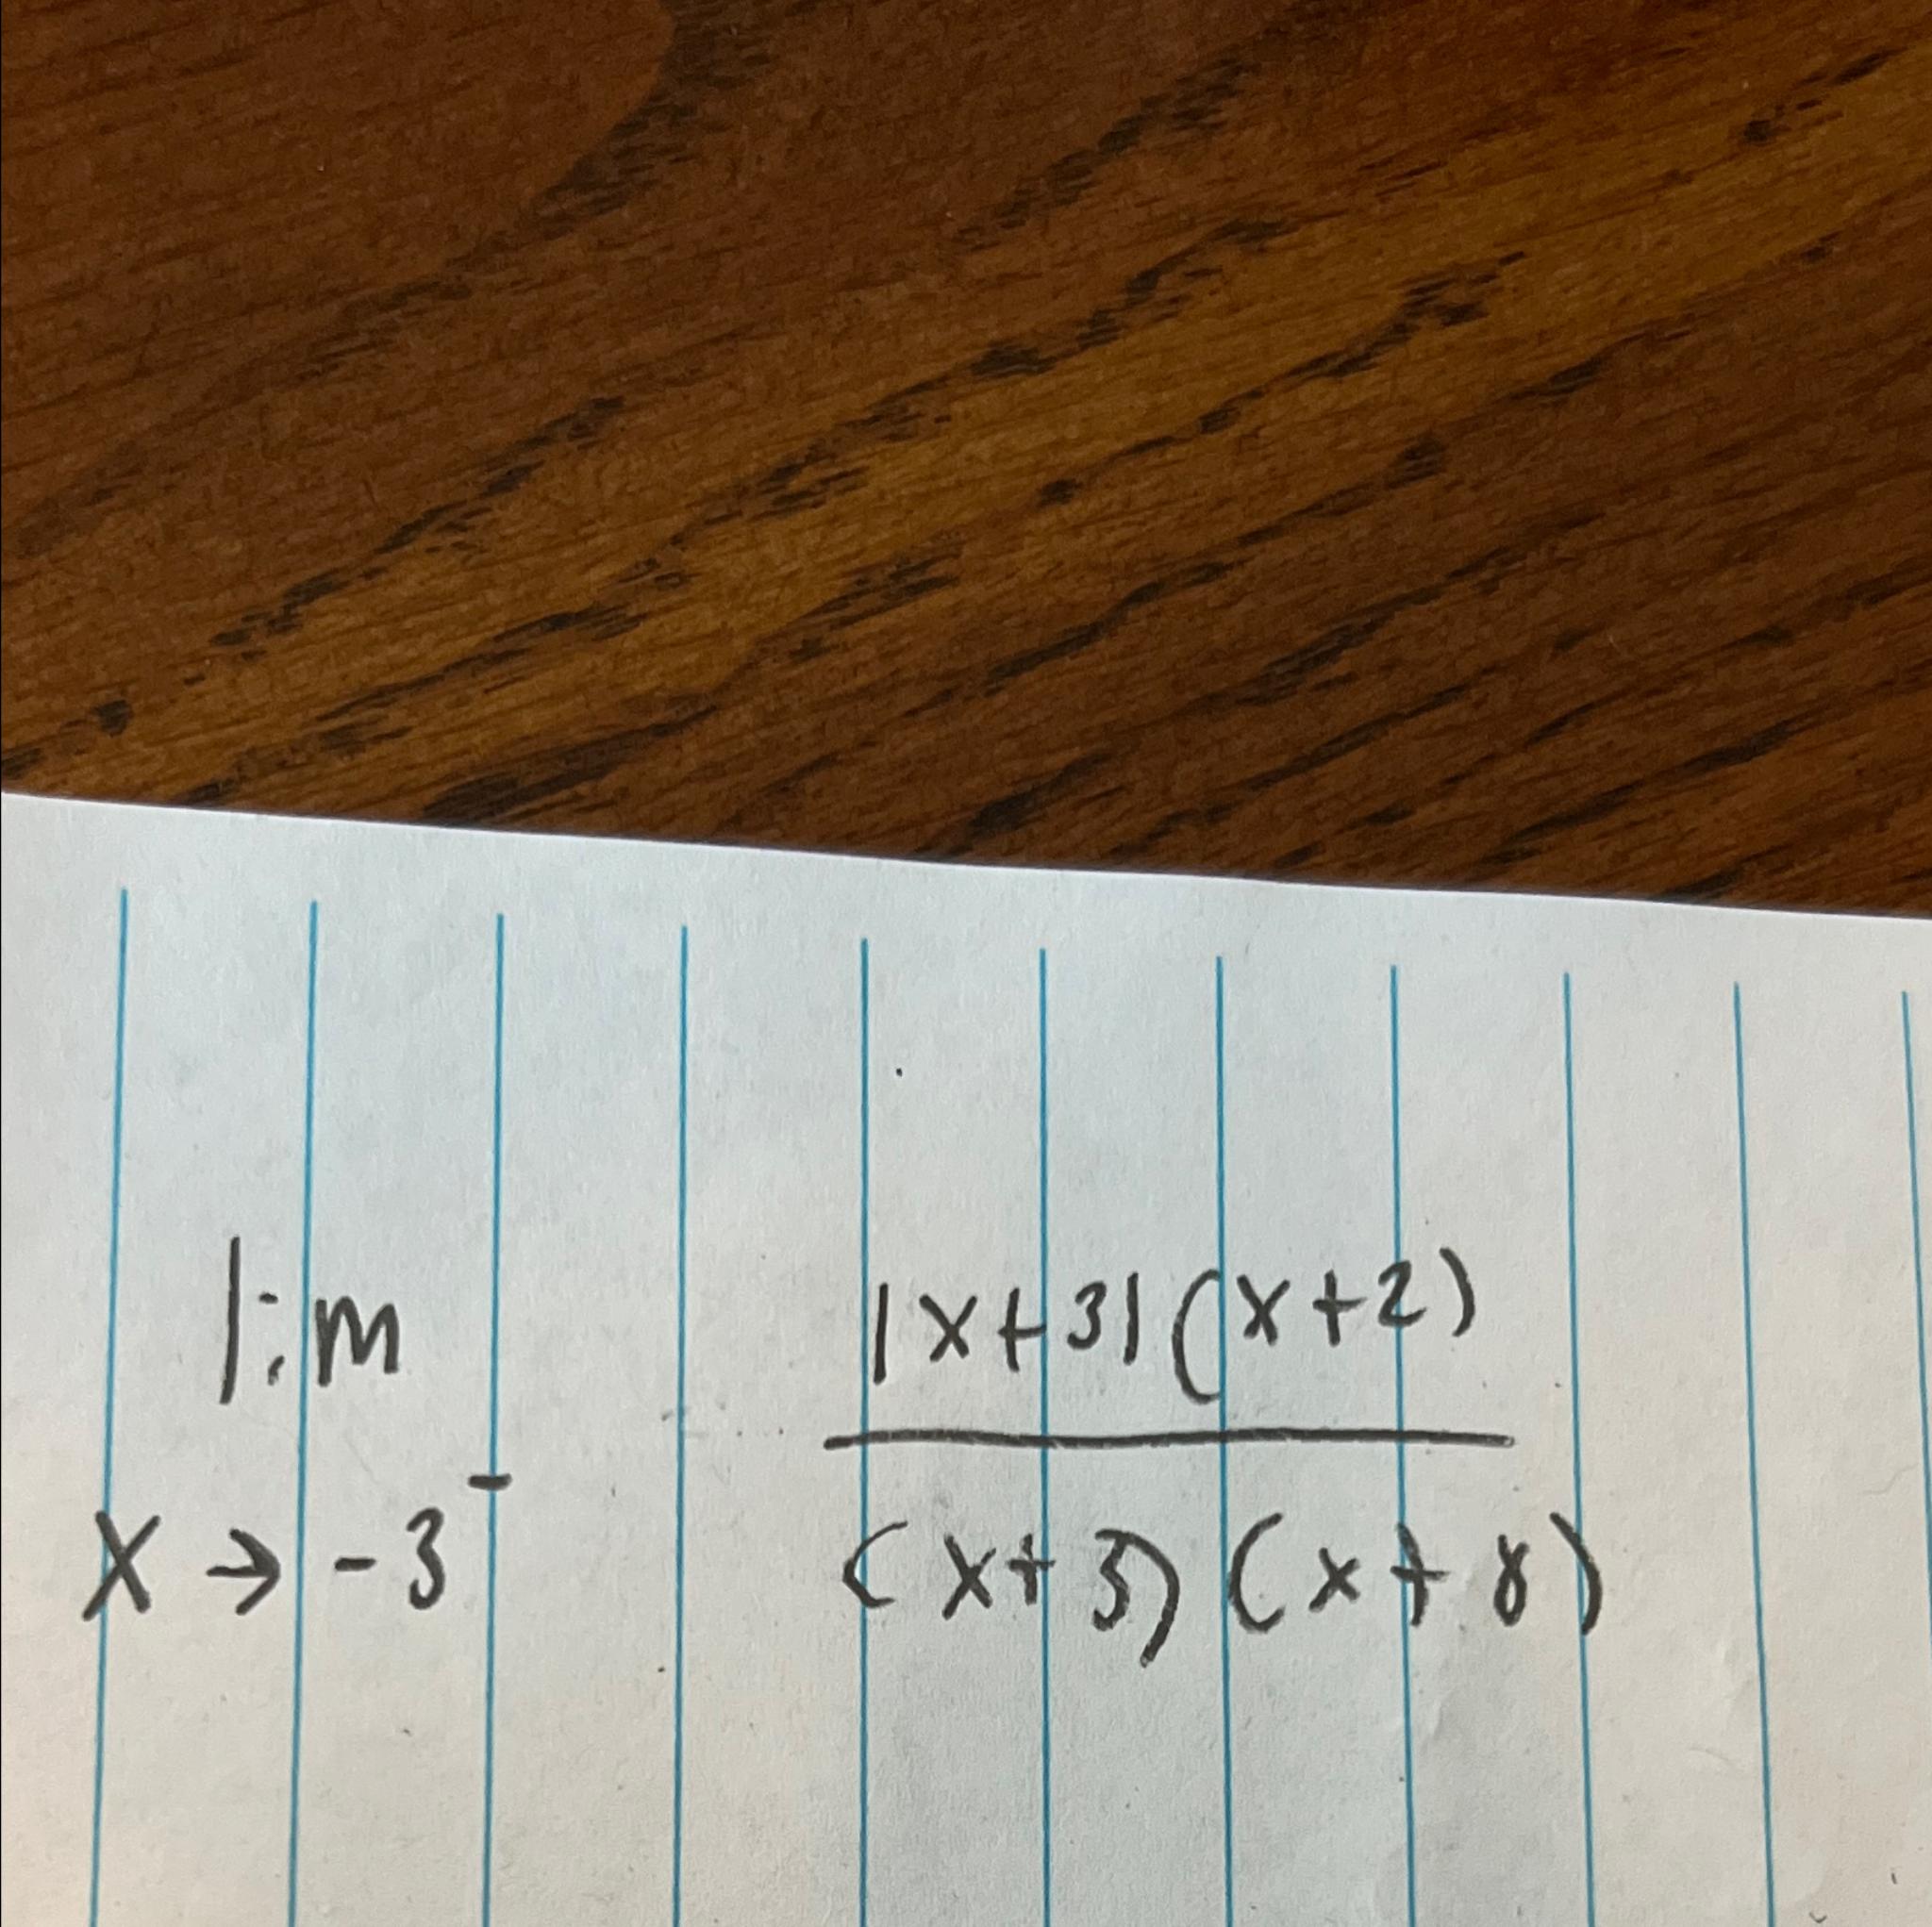 lim |x+3|(x+2)
x → -3⁻ (x+3)(x+8)